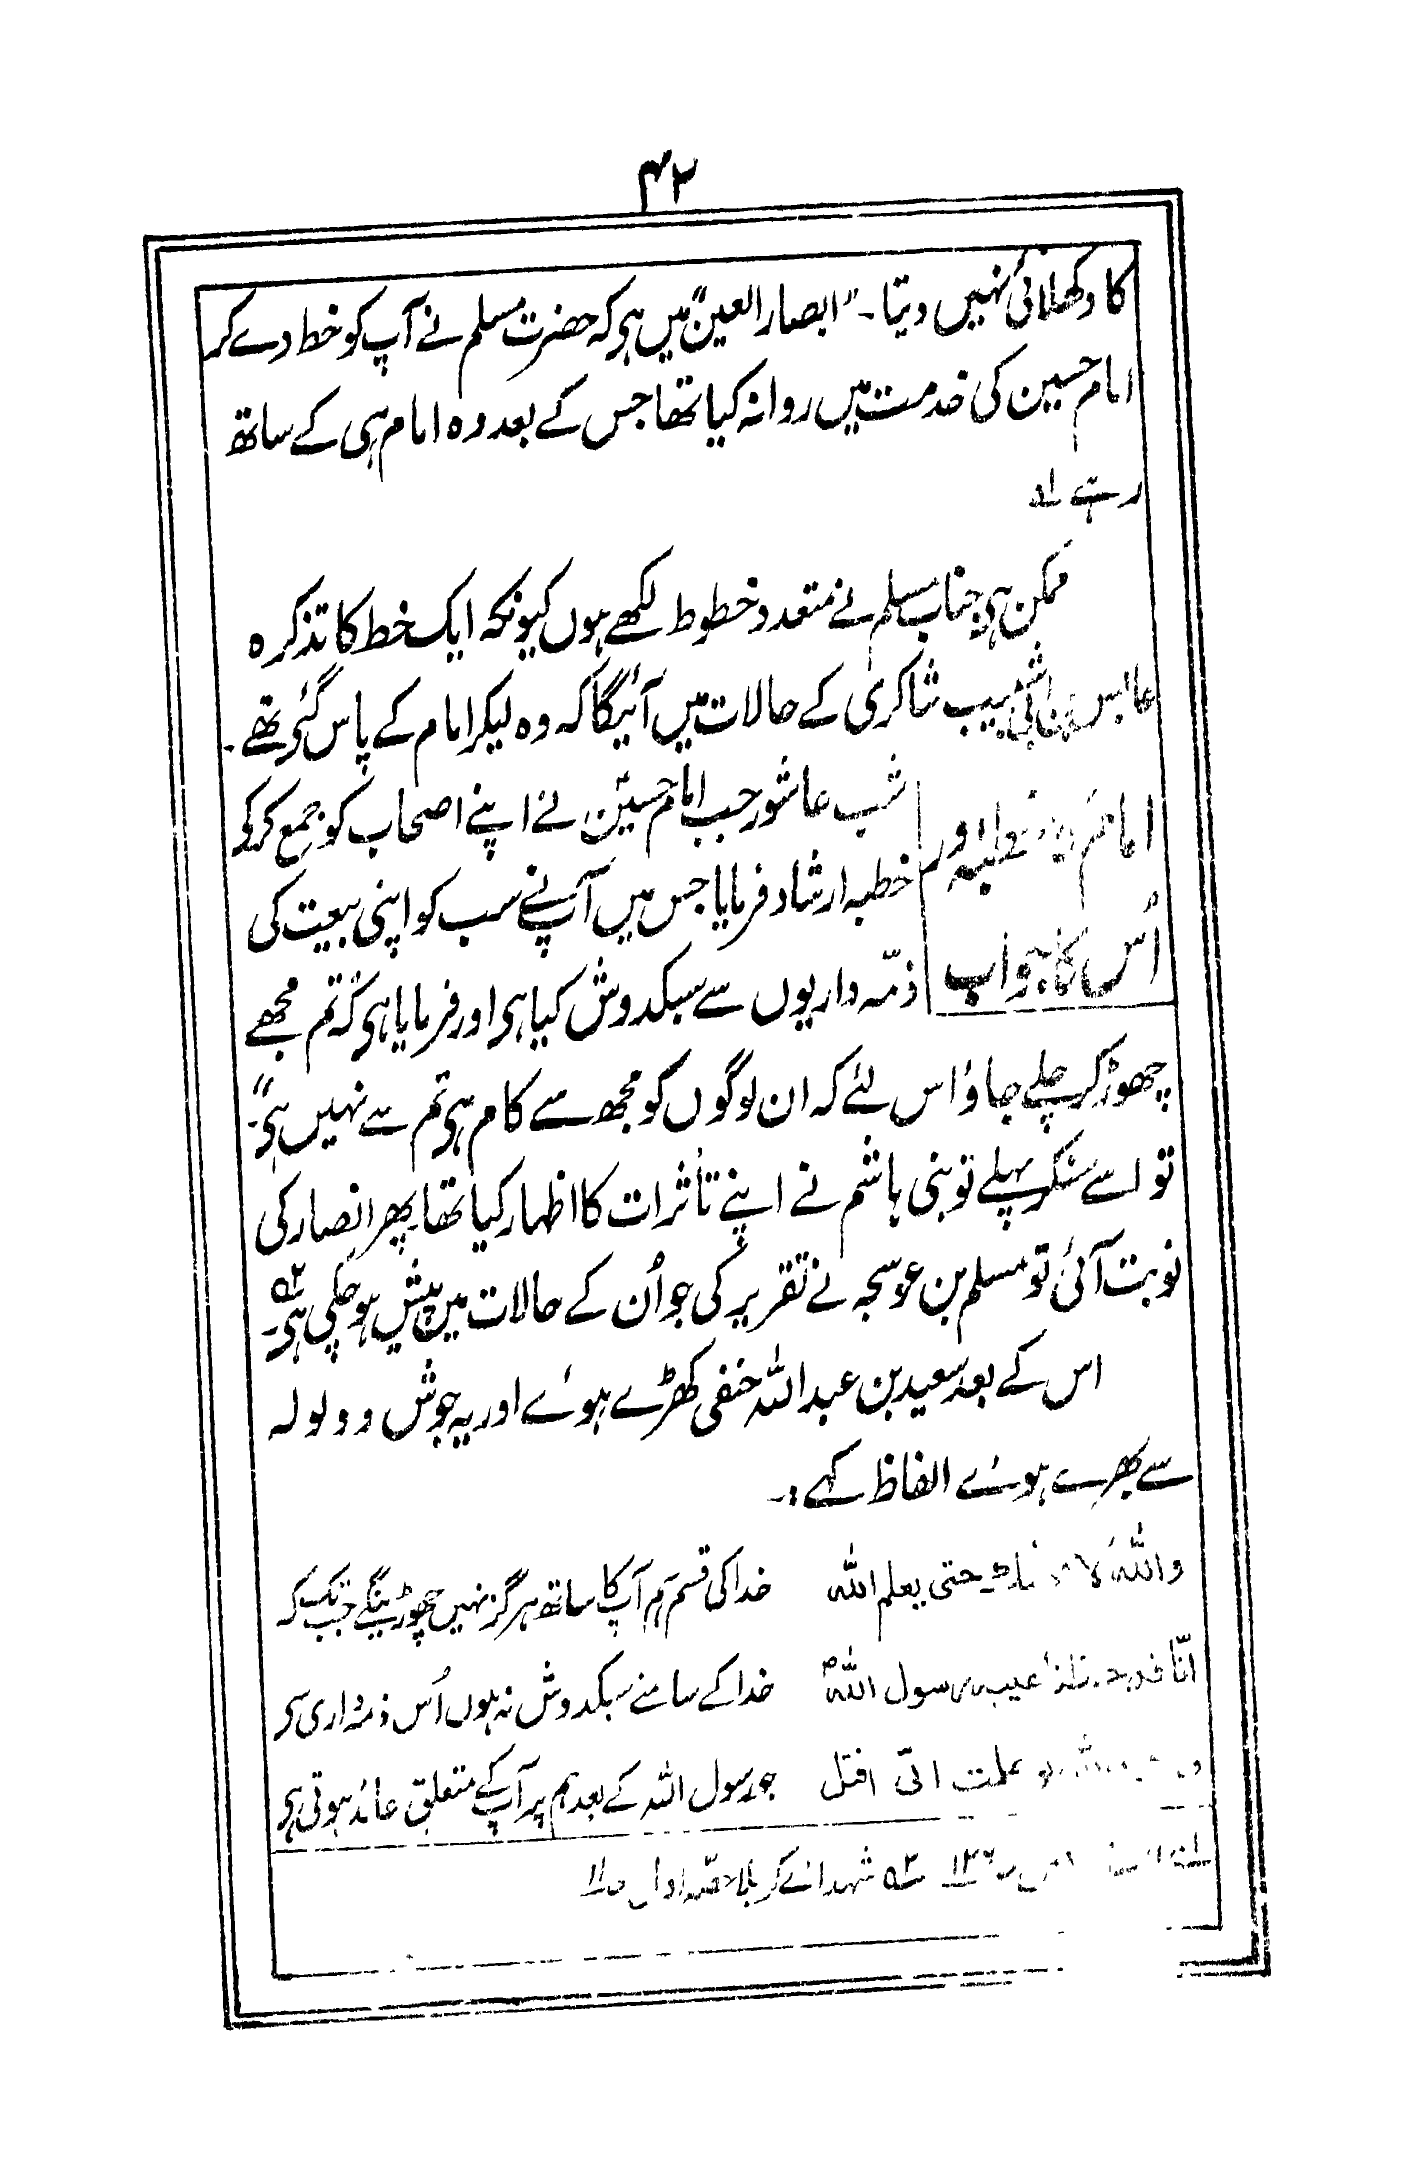 ۴۲
کا دکھلائی نہیں دیتا۔ "ابصار العین" میں ہی کہ حضرت مسلم نے آپ کو خط دے کر
امام حسین کی خدمت میں روانہ کیا تھا جس کے بعد وہ امام ہی کے ساتھ
رہے ؎۱
ممکن ہی جناب مسلم نے متعدد خطوط لکھے ہوں کیونکہ ایک خط کا تذکرہ
عابس بن ابی شبیب شاکری کے حالات میں آئیگا کہ وہ لیکر امام کے پاس گئی تھے۔
امامؑ کا خطبہ اور
اُس کا جواب
شب عاشور جب امام حسینؑ نے اپنے اصحاب کو جمع کرکے
خطبہ ارشاد فرمایا جس میں آپ نے سب کو اپنی بیعت کی
ذمّہ داریوں سے سبکدوش کیا ہی اور فرمایا ہی کہ "تم مجھے
چھوڑ کر چلے جاؤ اس لئے کہ ان لوگوں کو مجھ سے کام ہی تم سے نہیں ہی"۔
تو اسے سنکر پہلے تو بنی ہاشم نے اپنے تأثرات کا اظہار کیا تھا پھر انصار کی
نوبت آئی تو مسلم بن عوسجہ نے تقریر کی جو اُن کے حالات میں پیش ہو چکی ہی۔ ؎۲
اس کے بعد سعید بن عبداللہ حنفی کھڑے ہوئے اور یہ جوش و ولولہ
سے بھرے ہوئے الفاظ کہے :۔
واللہ لا حتی یعلم اللہ
خدا کی قسم ہم آپ کا ساتھ ہرگز نہیں چھوڑینگے جب تک کہ
انّا قد رسول اللہؐ
خدا کے سامنے سبکدوش نہ ہوں اُس ذمہ داری سے
علمت انّی اقتل
جو رسول اللہ کے بعد ہم پر آپ کے متعلق عائد ہوتی ہی
؎۲ شہدائے کربلا حصّہ اول